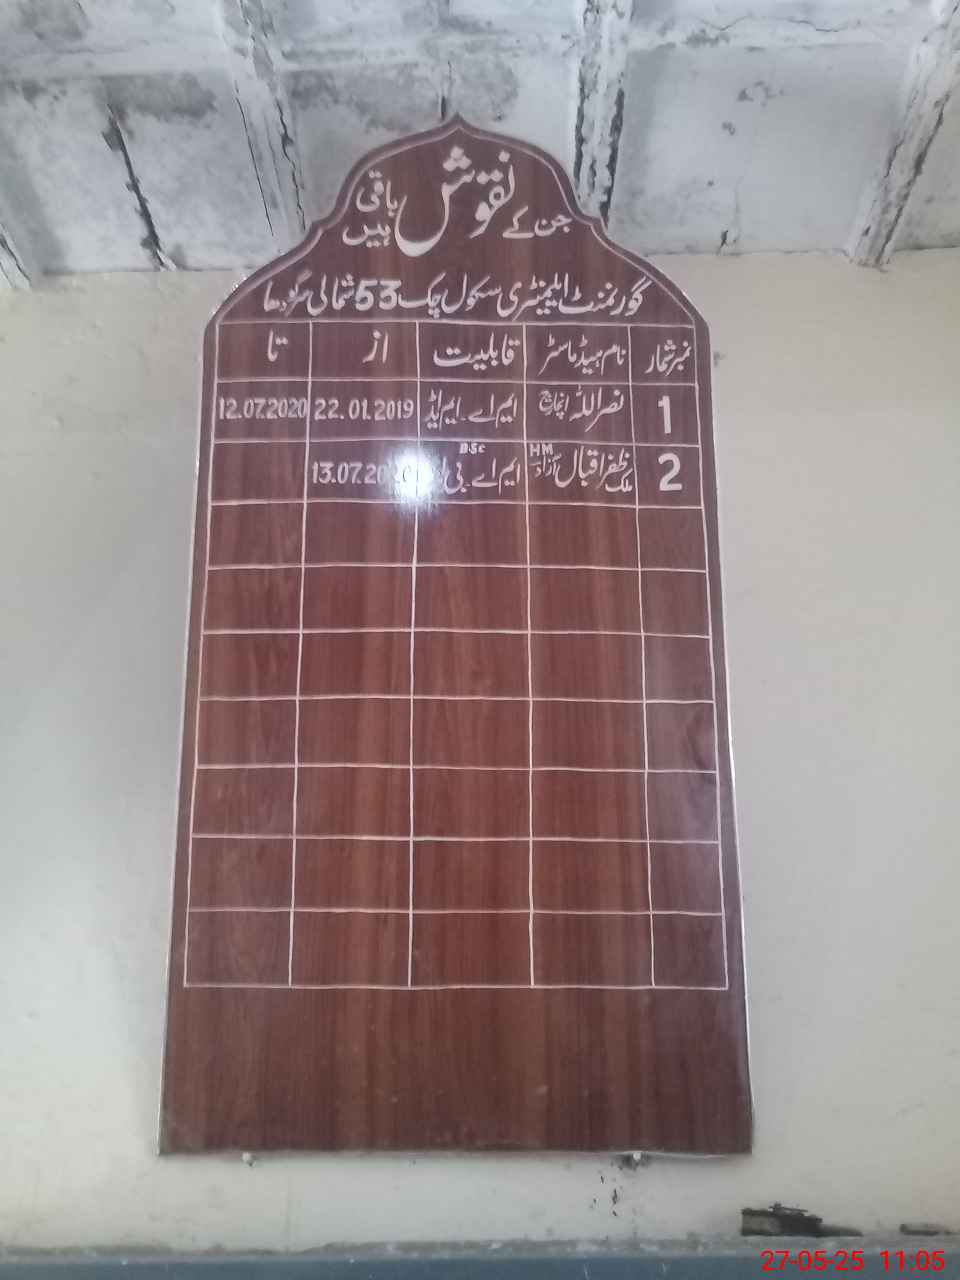 جن کے نقوش باقی ہیں
گورنمنٹ ایلیمنٹری سکول چک 53 شمالی سرگودھا
نمبر شمار نام ہیڈ ماسٹر قابلیت از تا
1 نصر اللہ انچارج ایم اے ۔ ایم ایڈ 22.01.2019 12.07.2020
2 ملک ظفر اقبال آزاد HM ایم اے ۔ بی B.Sc 13.07.20
27-05-25 11:05